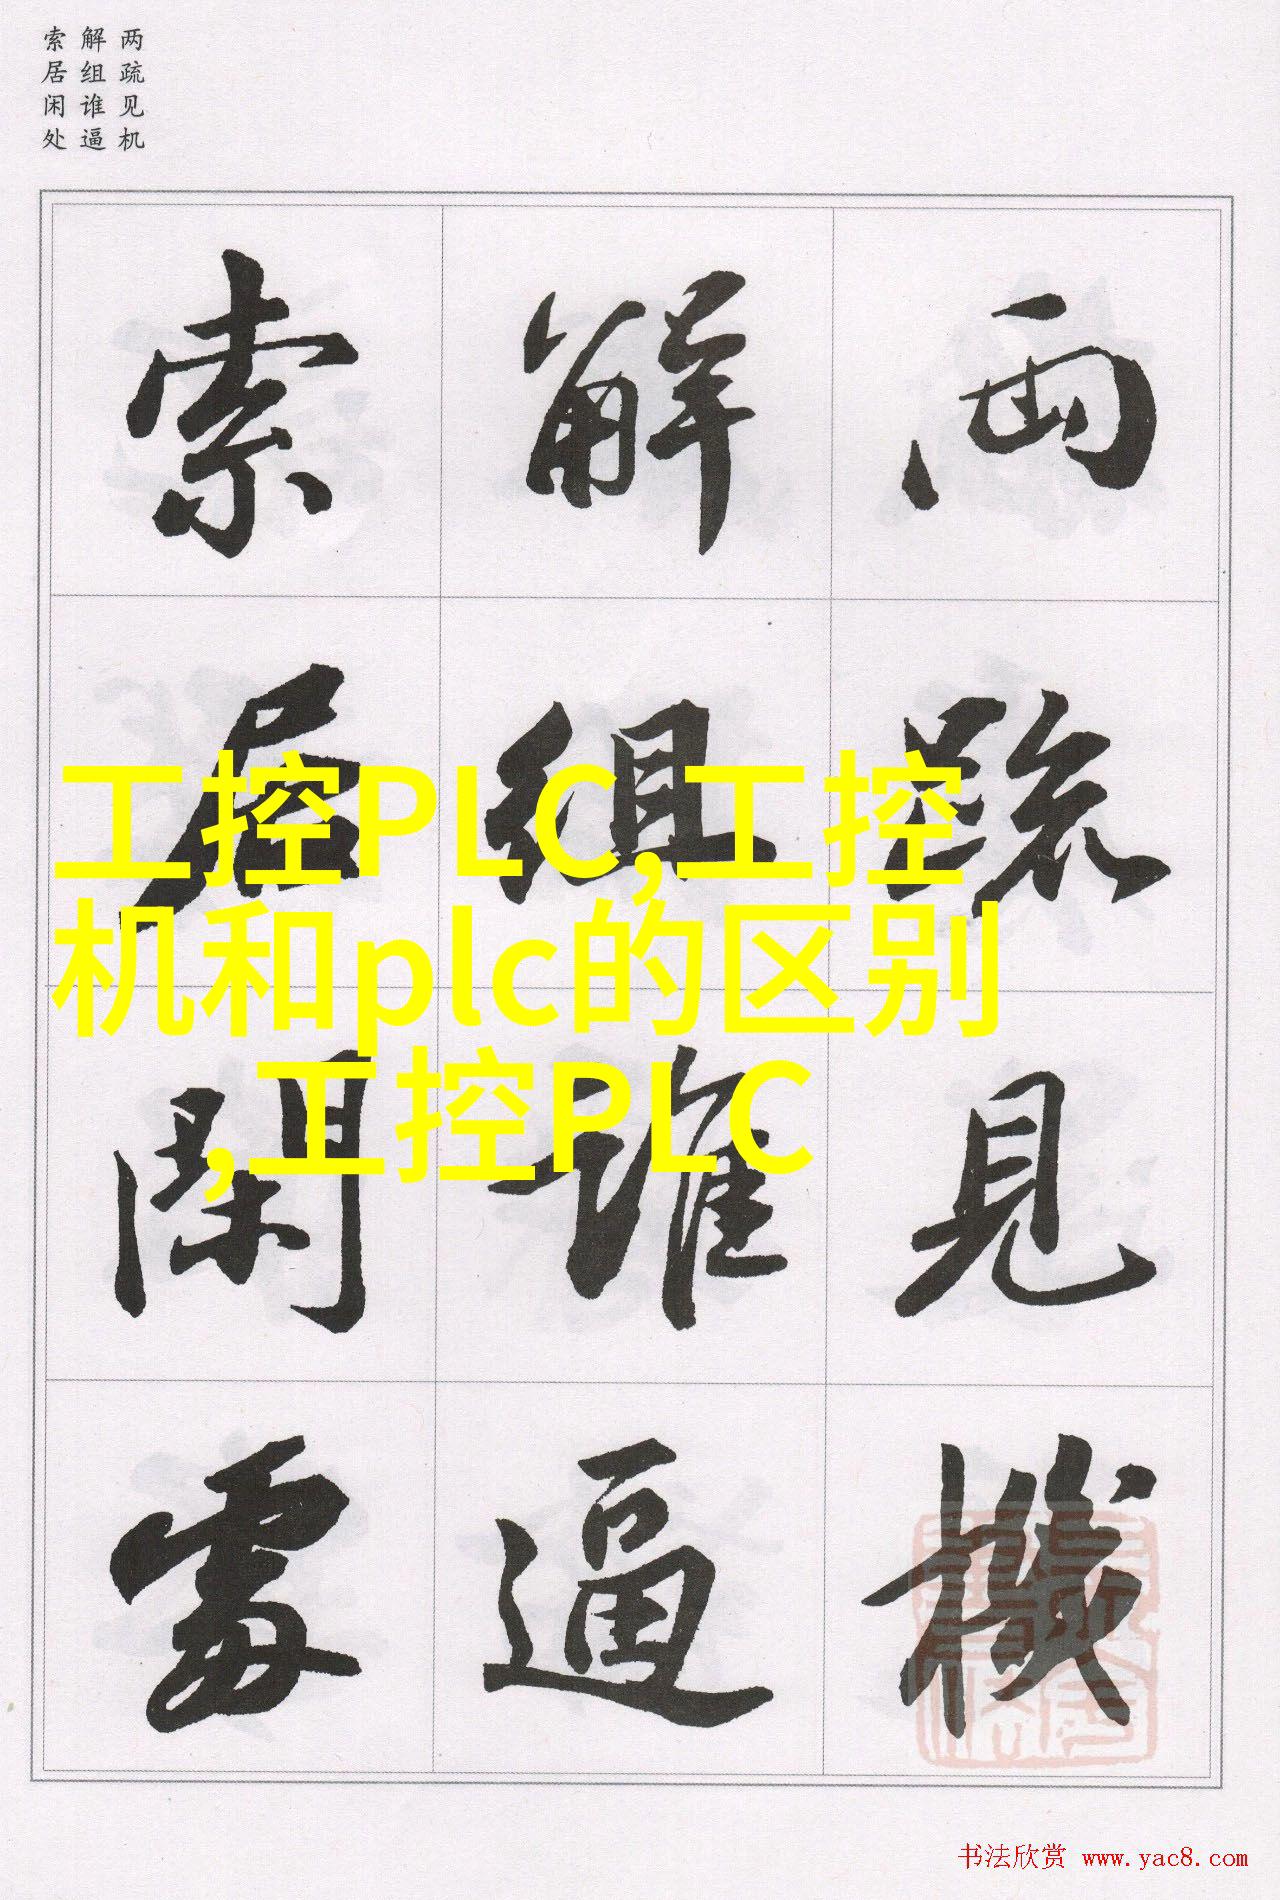 两疏见机
解组谁逼
索居闲处
两疏見機
解組誰逼
索居閑處
工控PLC,工控
机和plc的区别
,工控PLC
书法欣赏 www.yac8.com